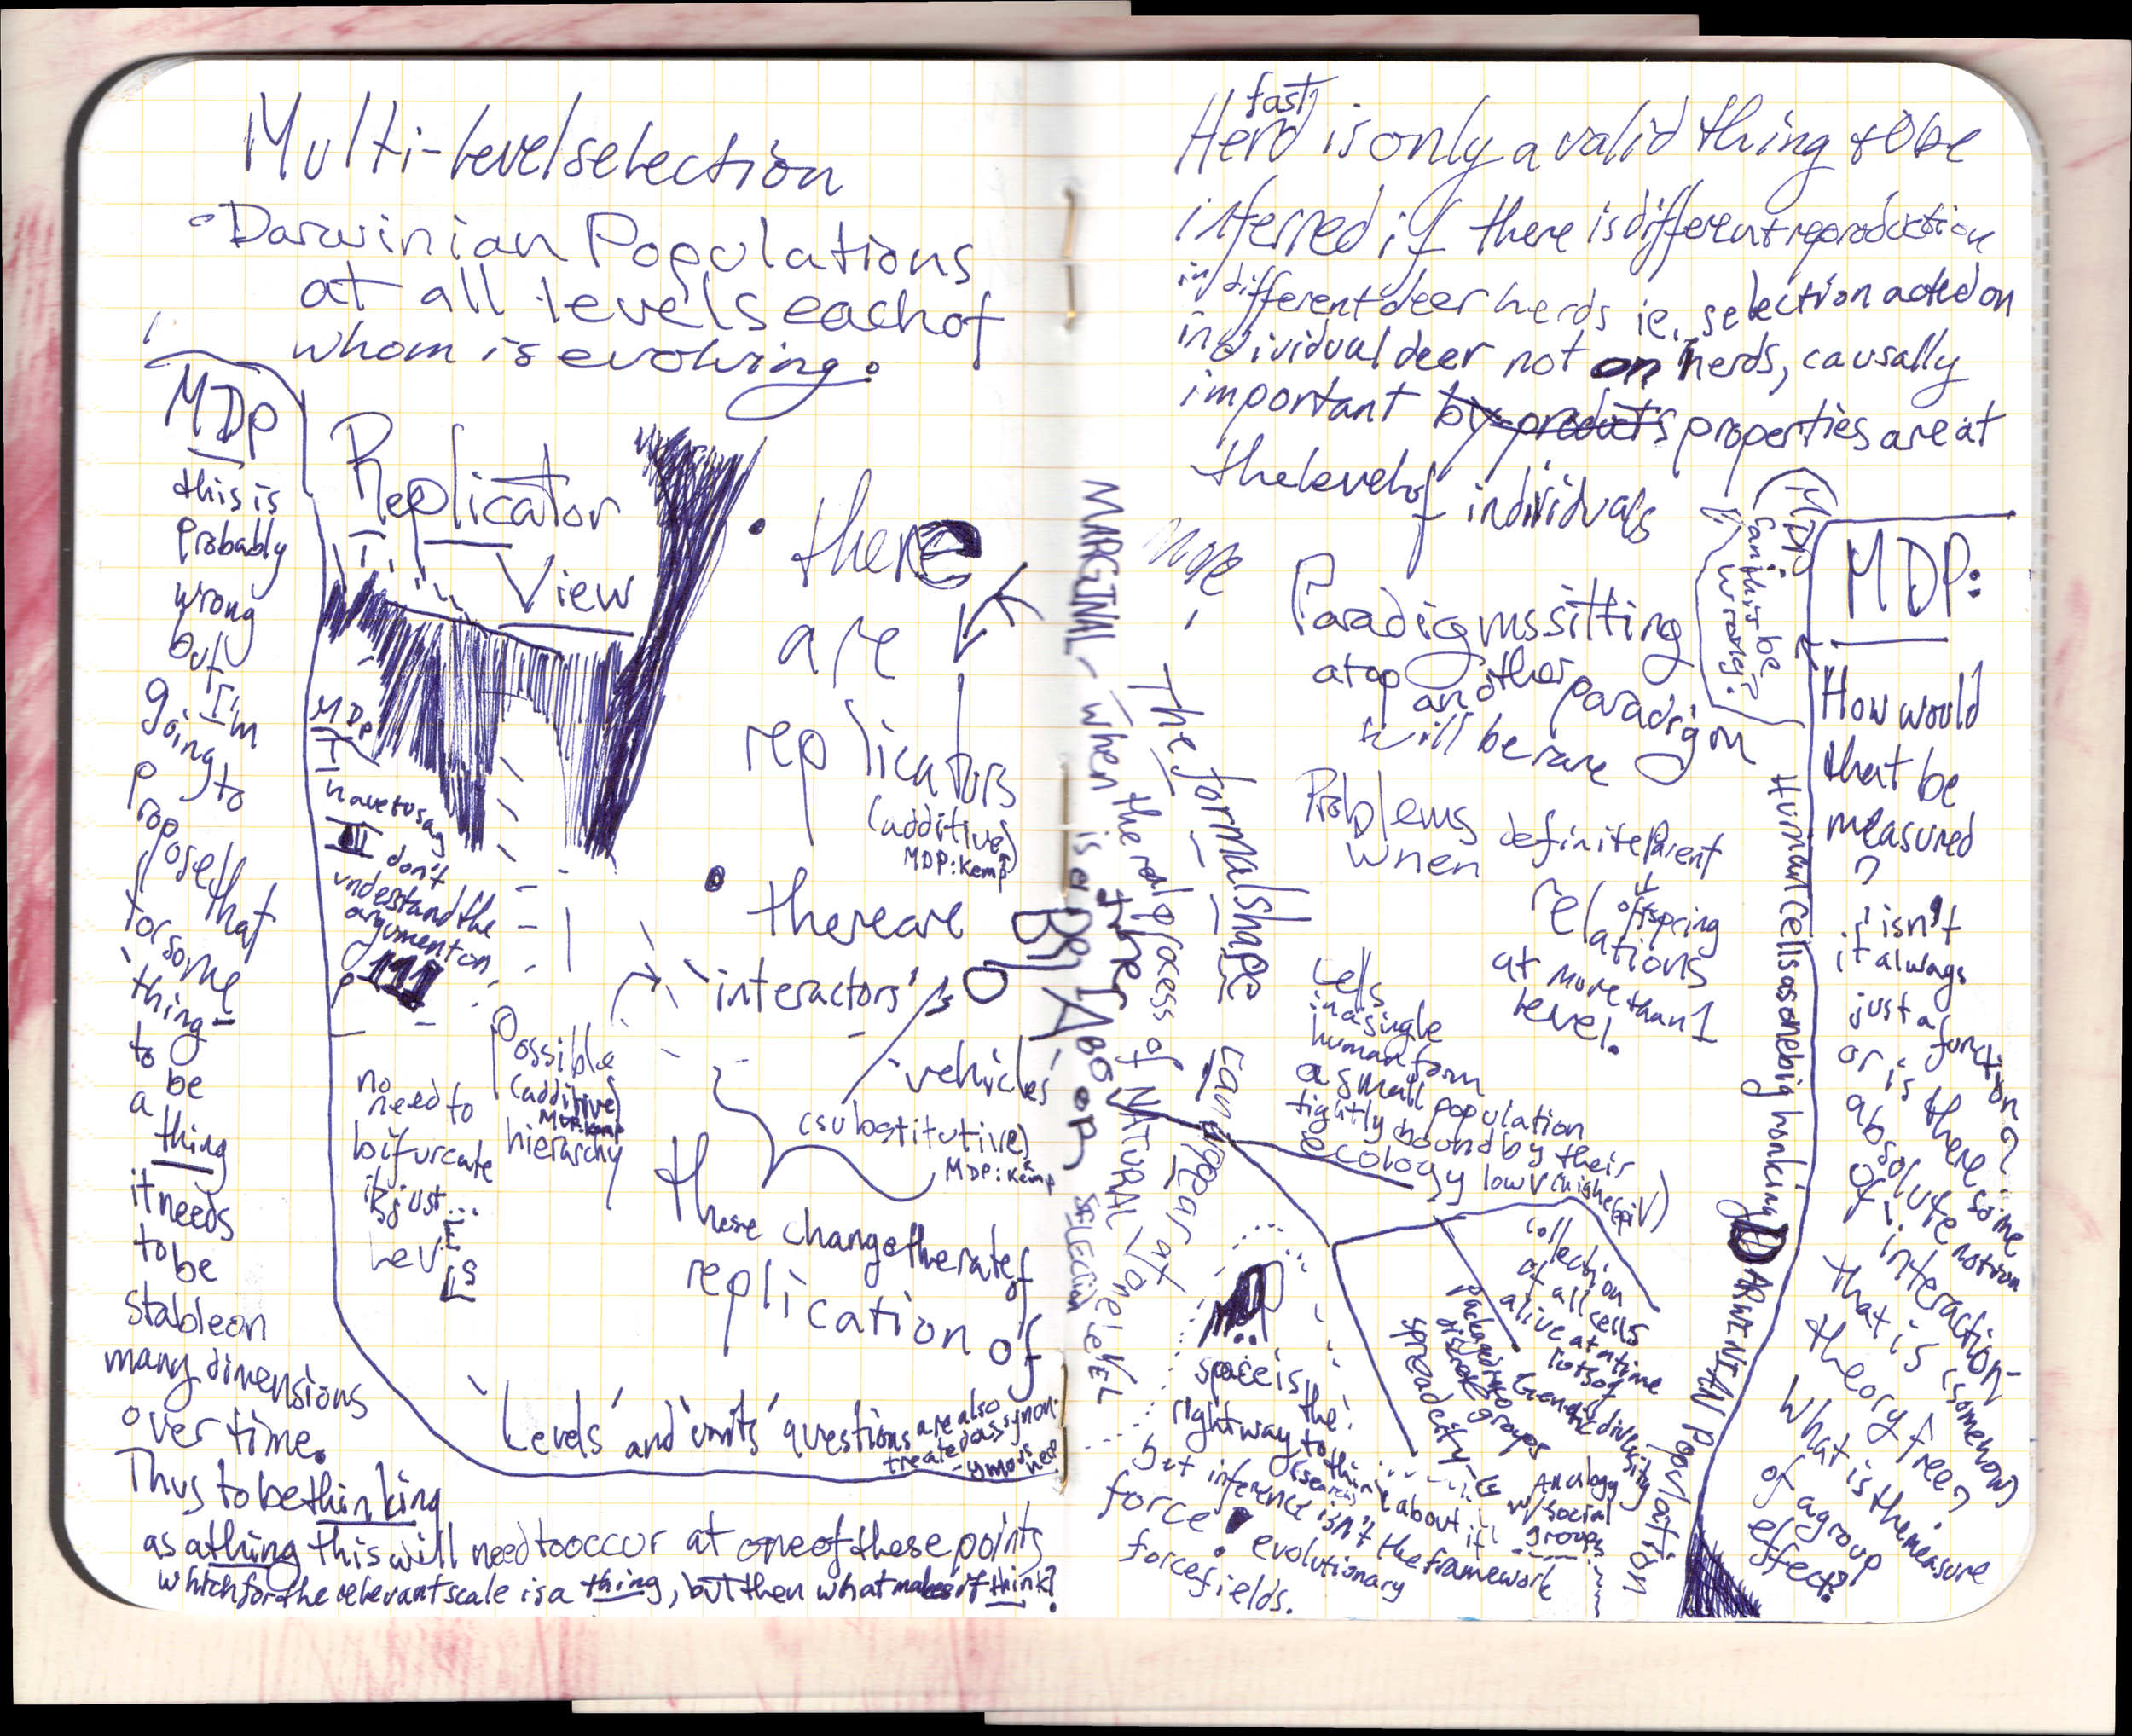 Multi-level selection
- Darwinian Populations
at all levels each of
whom is evolving.
MDP
this is
probably
wrong
but
I'm
going
to
propose
that
for some
'thing'
to
be
a
thing
it needs
to be
stable on
many dimensions
over time.
Thus to be thinking
as a thing this will need to occur at one of these points
which for the relevant scale is a thing, but then what makes it think?
Replicator
View
MDP
I
have to say
I don't
understand the
argument on
p 111
no
need to
bifurcate
it's just...
LEVELS
• there
are
replicators
(additive)
MDP: Kemp
• there are
'interactors'
vehicles
(substitutive)
MDP: Kemp
Possible
(additive)
MDP: Kemp
hierarchy
these change the rate of
replication of
'Levels' and 'units' questions are also
treated as synon-
ymous
here?
MARGINAL - when there is a
real process of NATURAL
SELECTION
ONE LEVEL
fast
Herd is only a valid thing to be
inferred if there is different reproduction
in different deer herds ie. selection acted on
individual deer not on herds, causally
important by-products properties are at
the level of individuals
nope
The formal shape
can appear at
Paradigms sitting
atop another paradigm
will be rare
Problems
when definite Parent
offspring
relations
at more than 1
level.
Cells
in a single
human form
a small population
tightly bound by their
ecology low V (high epi V)
collection
of all cells
alive at a time
lots of
Genetic diversity
packaged into
discrete groups
spread city
Analogy
w/ social
groups
MDP:
can this be
wrong?
Human cells as one big honking
DARWINIAN Population
MDP:
How would
that be
measured
?
isn't
it always
just a function?
or is there some
absolute notion
of interaction
that is (somehow)
theory free?
What is the measure
of a group
effect?
space is the
right way to think about it
(search)
but inference isn't the framework
force evolutionary
force fields.